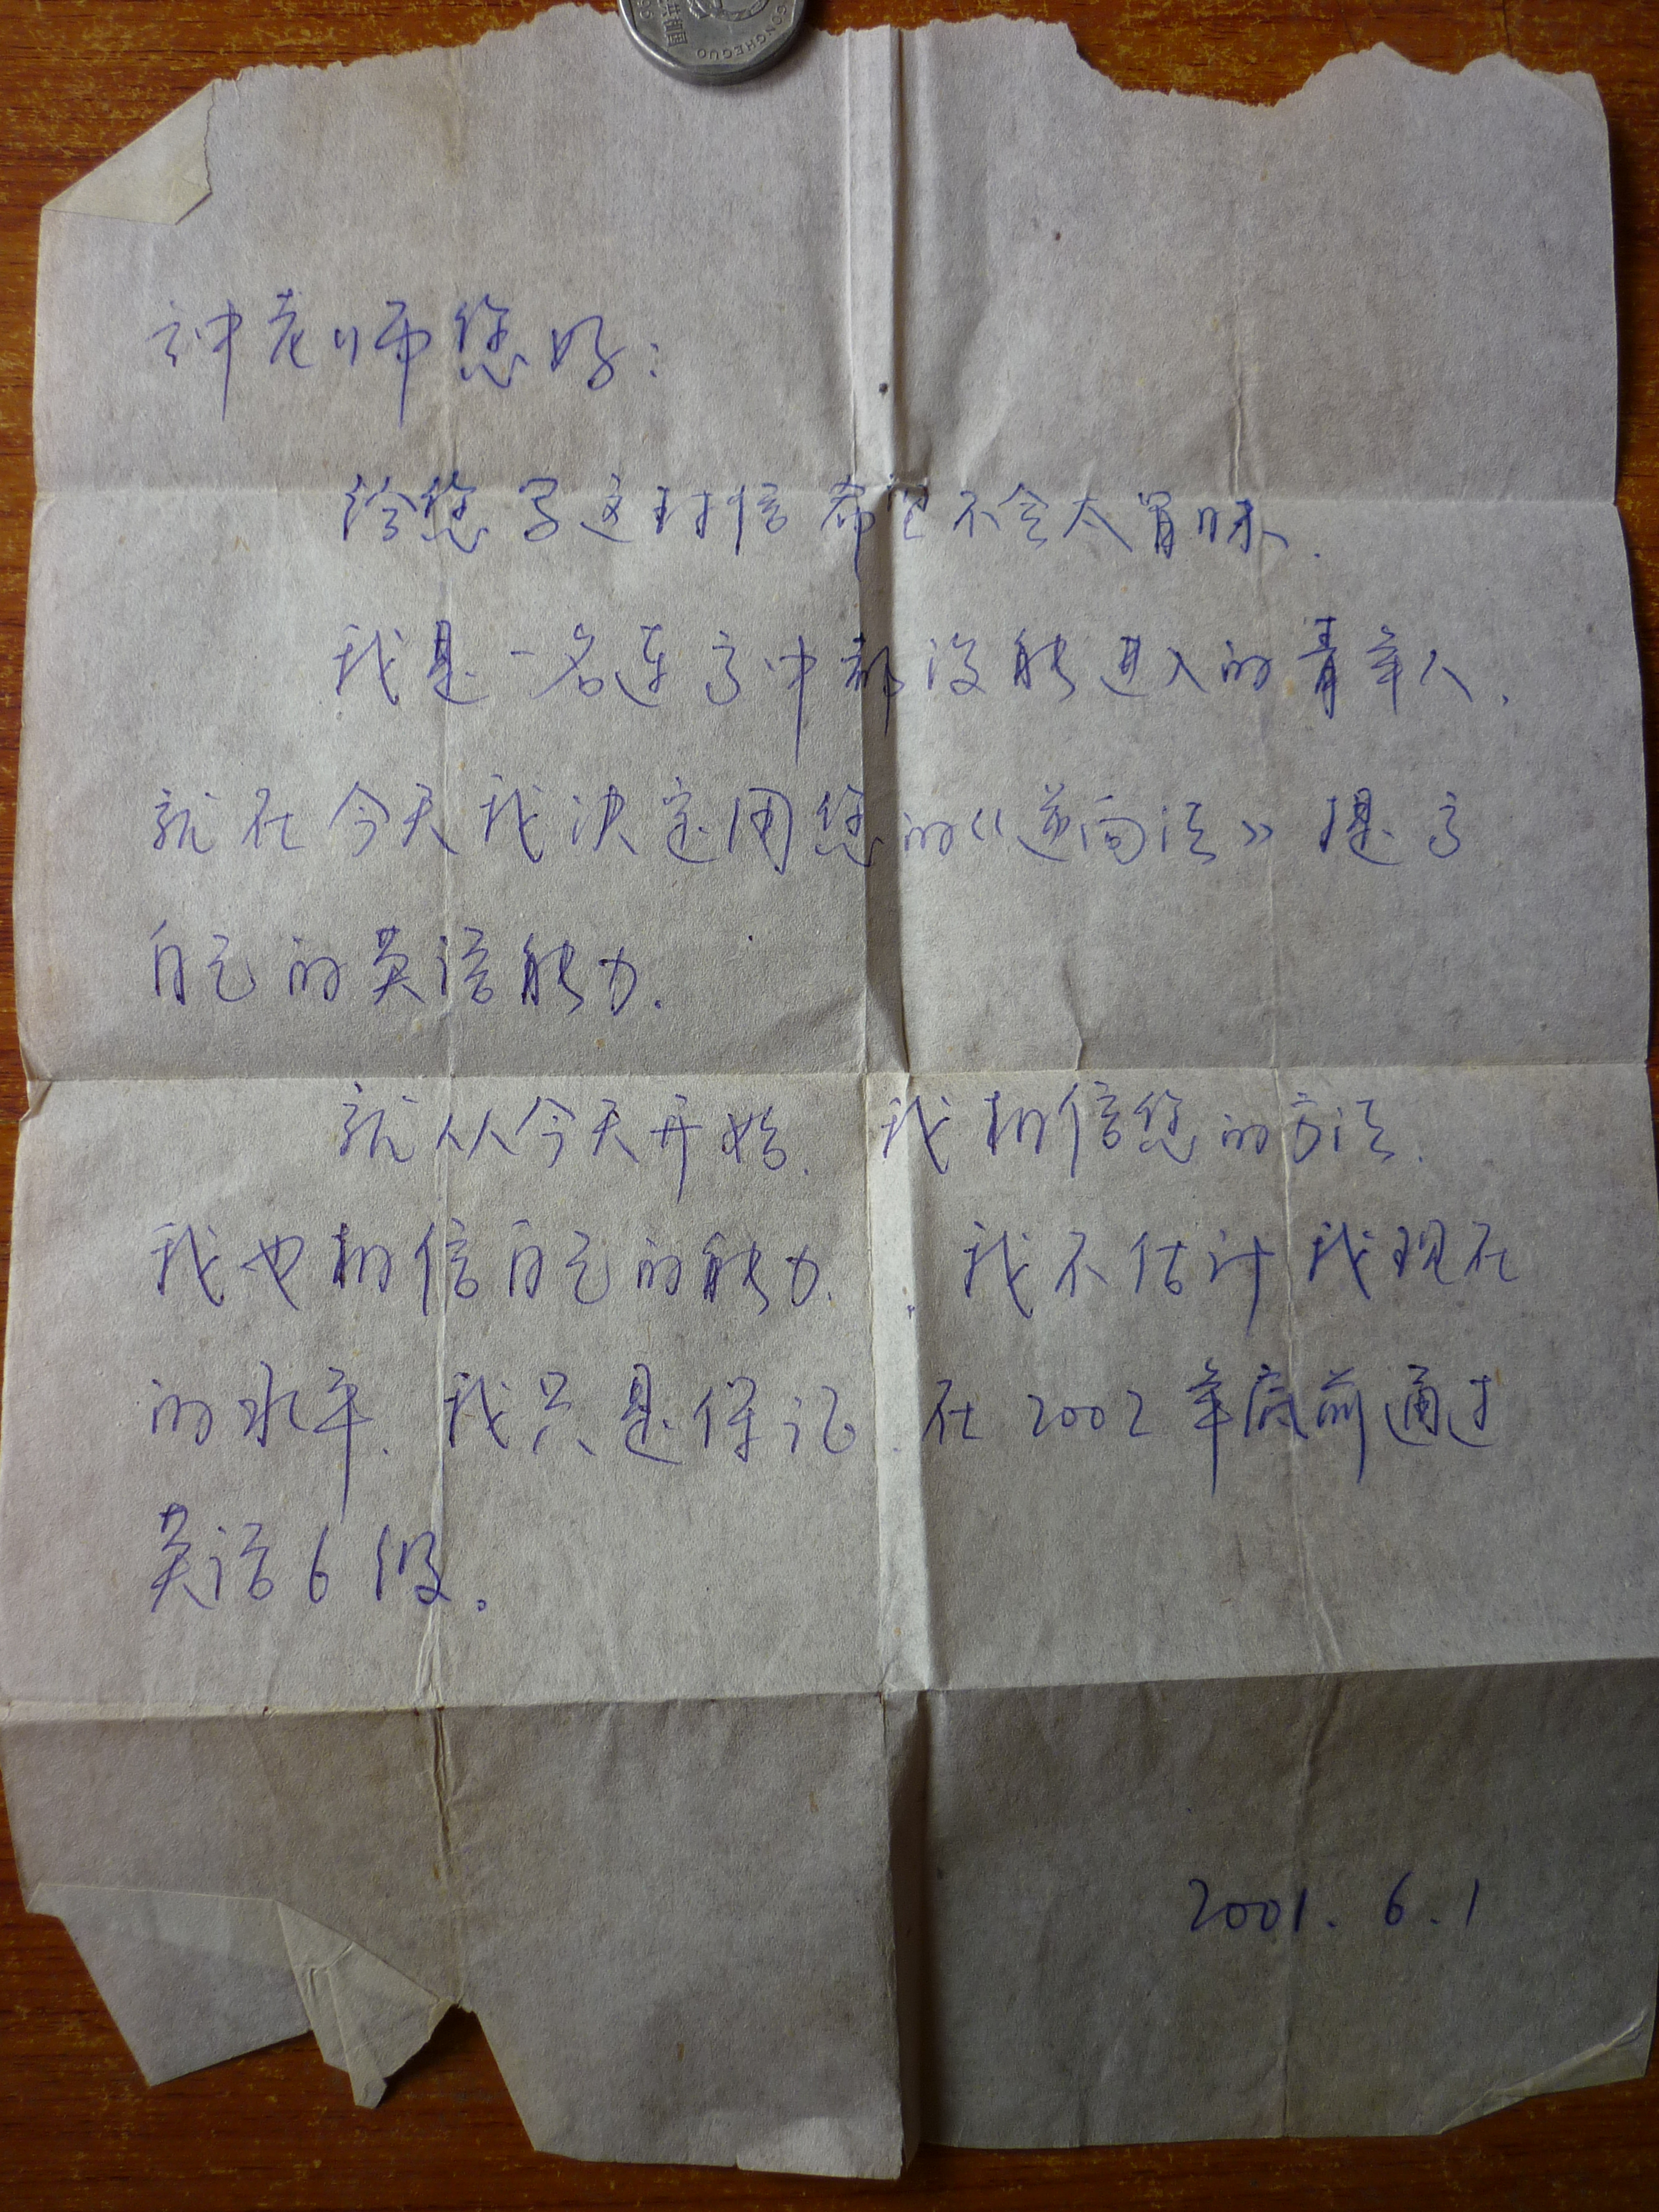 共和国
GONGHEGUO
钟老师您好:
给您写这封信希望不会太冒昧.
我是一名连高中都没能进入的青年人.
就在今天我决定用您的《逆向法》提高
自己的英语能力.
就从今天开始. 我相信您的方法.
我也相信自己的能力. 我不估计我现在
的水平. 我只是保证.在2002年底前通过
英语6级.
2001.6.1